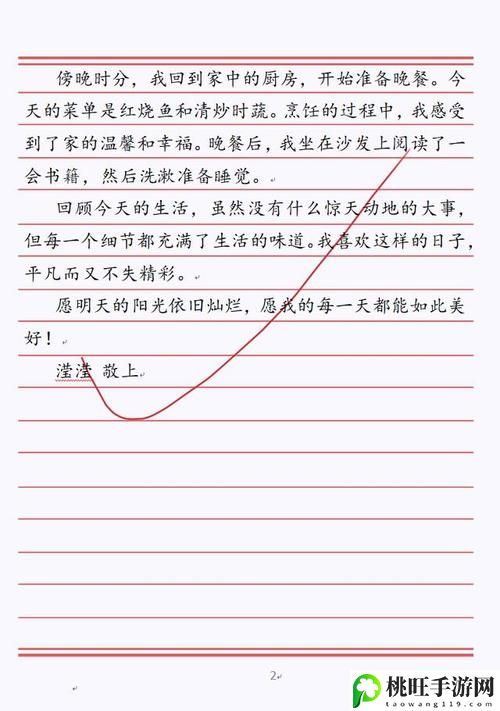 傍晚时分，我回到家中的厨房，开始准备晚餐。今
天的菜单是红烧鱼和清炒时蔬。烹饪的过程中，我感受
到了家的温馨和幸福。晚餐后，我坐在沙发上阅读了一
会书籍，然后洗漱准备睡觉。
回顾今天的生活，虽然没有什么惊天动地的大事，
但每一个细节都充满了生活的味道。我喜欢这样的日子，
平凡而又不失精彩。
愿明天的阳光依旧灿烂，愿我的每一天都能如此美
好！
滢滢 敬上
2
桃旺手游网
taowang119.com